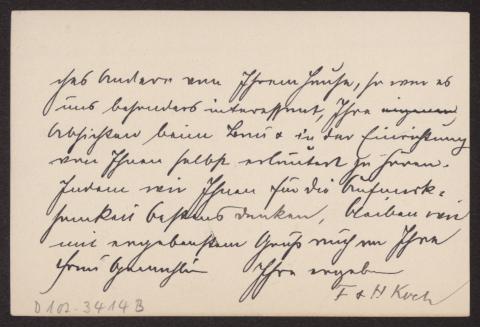 ches Andere von Ihrem Hause, so war es
uns besonders interessant, Ihre eigenen
Absichten beim Bau & in der Einrichtung
von Ihnen selbst erläutert zu hören.
Indem wir Ihnen für die Aufmerk=
samkeit bestens danken, bleiben wir
mit ergebenstem Gruss auch an Ihre
Frau Gemahlin Ihre ergeben
F & H Koch
D 102-3414 B